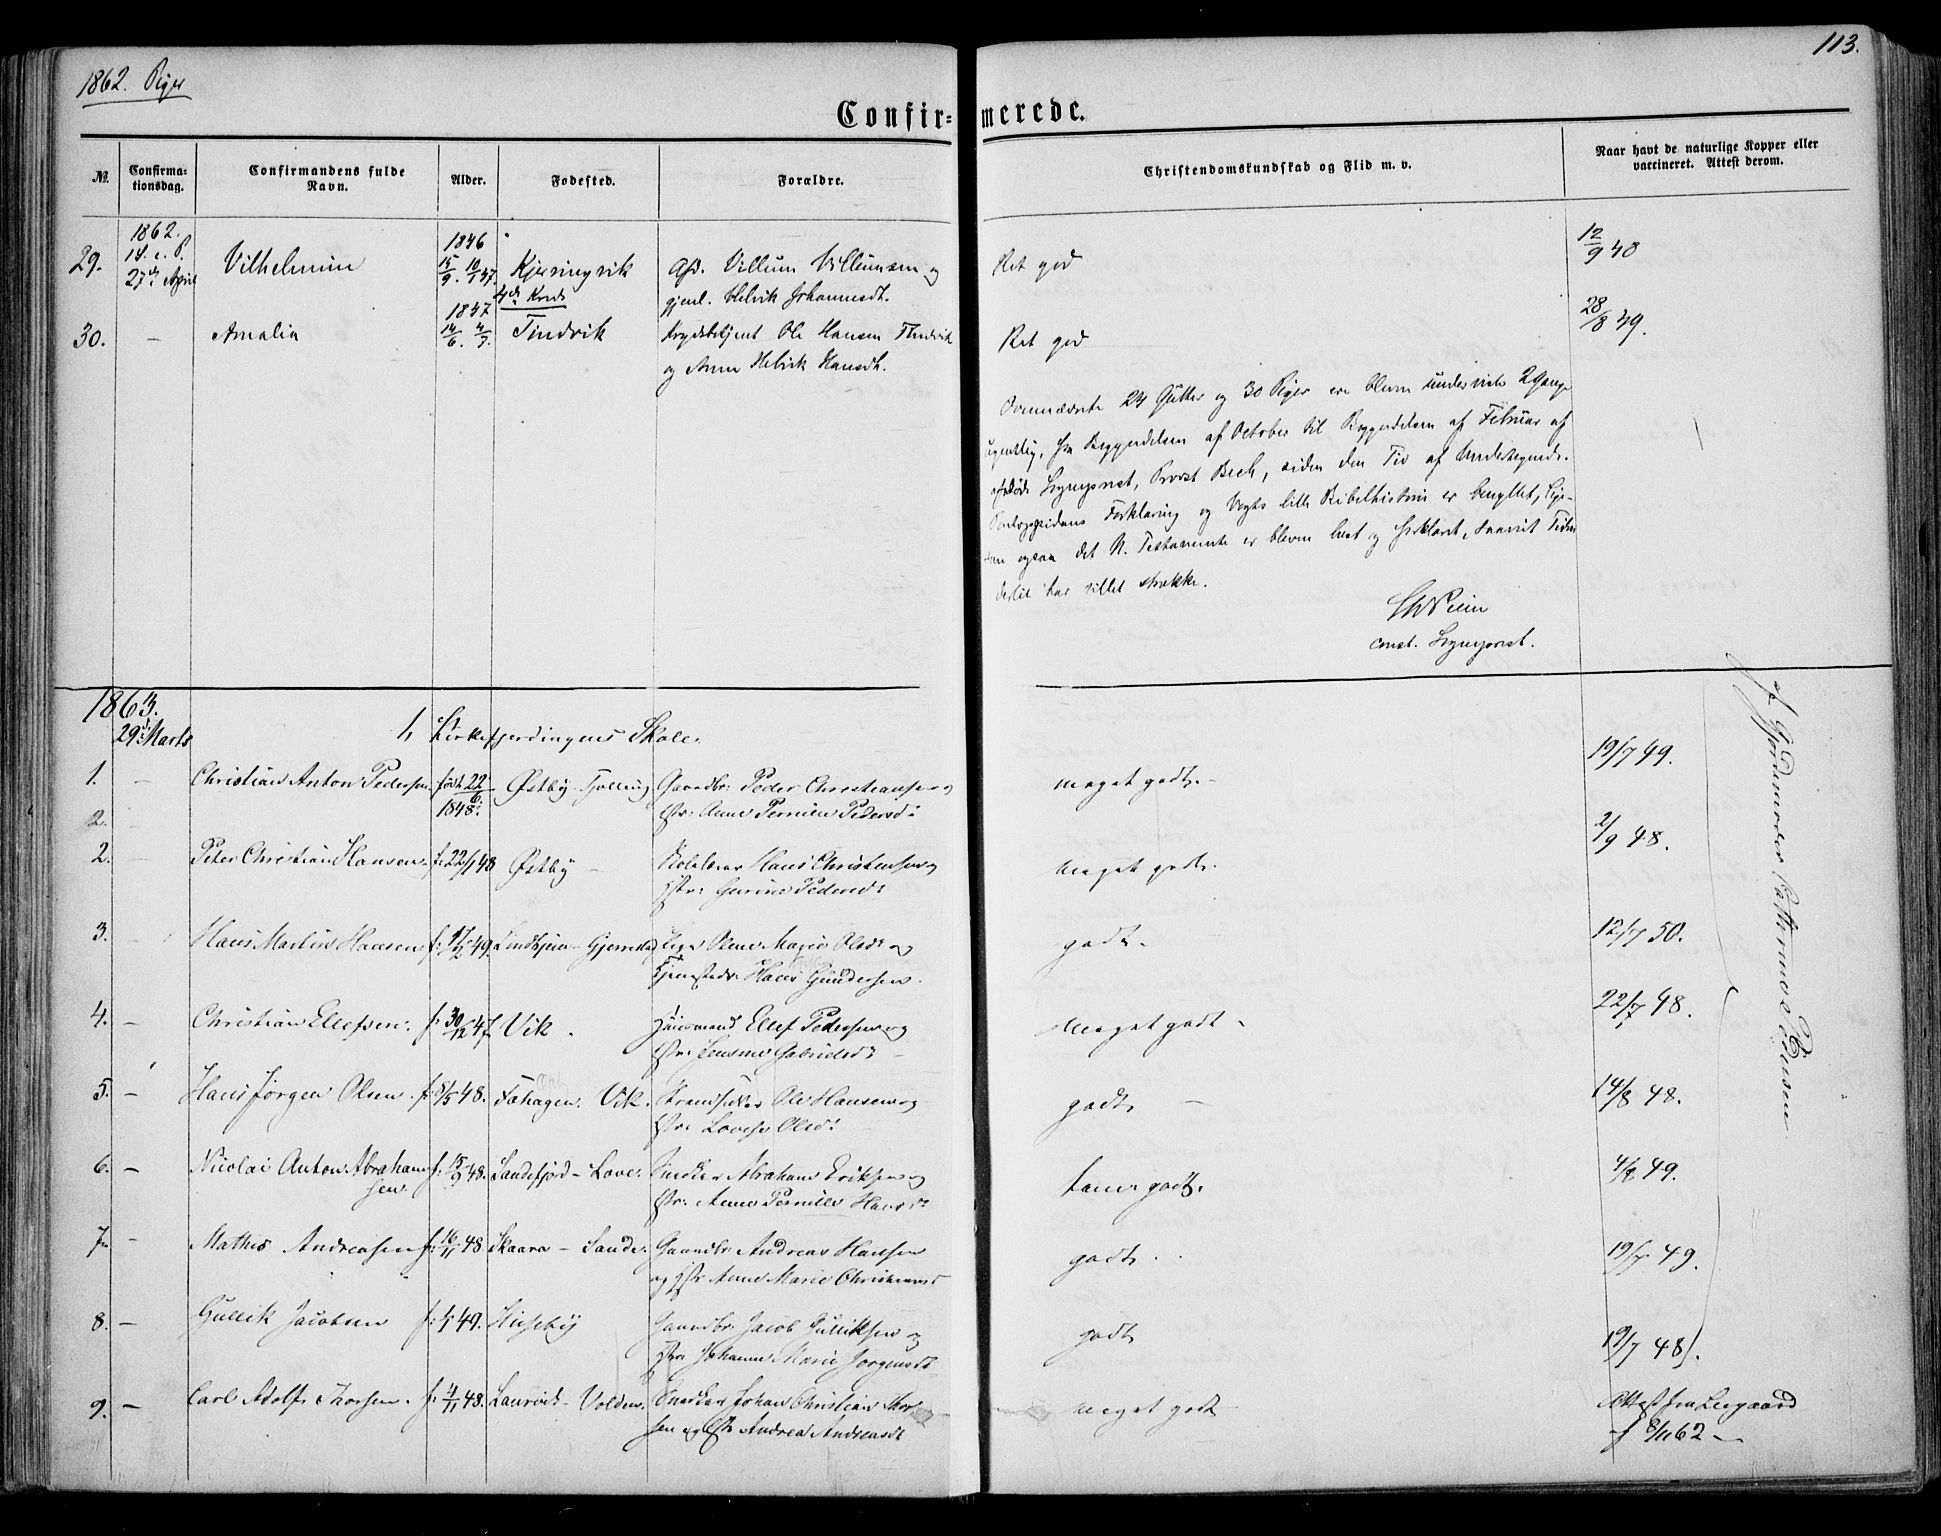 1862. Piger
113.
Confir=
merede.
No.
Confirma-
tionsdag.
Confirmandens fulde
Navn.
Alder.
Fødested.
Forældre.
Christendomskundskab og Flid m. v.
Naar havt de naturlige Kopper eller
vaccineret. Attest derom.
1862.
27de April
29. Vilhelmine 1846 15/9. 10/1 47. Kjerringvik
Villum Villumsen og
Helvik Johannesdt.
Ret god
12/9 48
4de Kreds
30. - Amalia 1847 14/6. 4/7 Tindvik Ole Hansen Tindvik
og Anne Helvik Hansdt.
Ret god
28/8 49.
Ovennævnte 24 Gutter og 30 Piger ere blevne underviste 2 Gange
ugentlig, fra Begyndelsen af October til Begyndelsen af Februar af
afdøde Sognepræst, Provst Bech, siden den Tid af Undertegnede.
Pontoppidans Forklaring og Vogts lille Bibelhistorie er benyttet, lige-
som ogsaa det N. Testamente er bleven læst og forklaret, saavidt Tiden
dertil har villet strække.
const. Sognepræst.
1863.
29de Marts
1, Kirkefjerdingens Skole.
1. - Christian Anton Pedersen født 22/6 1848. Østby - Tjølling Gaardbr: Peder Christiansen og
Hstr: Anne Pernille Pedersd:
meget godt. -
19/7 49.
2.
2. - Peter Christian Hansen. f. 22/1 48 Østby - Skolelærer Hans Christensen og
Hstr: Gurine Pedersd:
meget godt.
2/9 48.
3. - Hans Martin Hansen f: 49. Lindhjem - Gjerrestad Pige Olene Marie Olsd: og
Hans Gundersen.
godt.
12/7 50.
4. - Christian Ellefsen. f. 30/12 47. Vik. Huusmand Ellef Pedersen og
Hstr: Gabrielsd:
meget godt.
22/7 48.
5. - Hans Jørgen Olsen. f. 8/5 48. Fohagen. Vik. Ole Hansen og
Hstr: Lovise Olsd:
godt. -
14/8 48.
6. - Nicolai Anton Abraham-
sen. f. 15/9 48. Sandefjord - Love. Snedker Abraham Eriksen og
Hstr: Anne Pernille Hansd:
godt.
49.
7. - Mathis Andreasen f: 16/11 48. Skaara - Sande. Gaardbr: Andreas Hansen
og Hstr: Anne Marie Christensd:
godt.
19/7 49.
8. - Gullik Jacobsen f: 49. Huseby Gaardbr: Jacob Gulliksen og
Hstr: Johanne Marie Jørgensdt
godt
19/7 48.
9. - Carl Adolf Thorsen. f. 4/11 48. Laurvik - Volden. Snedker Johan Christian Thor-
sen og Hstr: Andrea Andreasdt
meget godt
Attest fra Leegaard
8/11 62 -
af Gjordemoder Cathrine Petersen